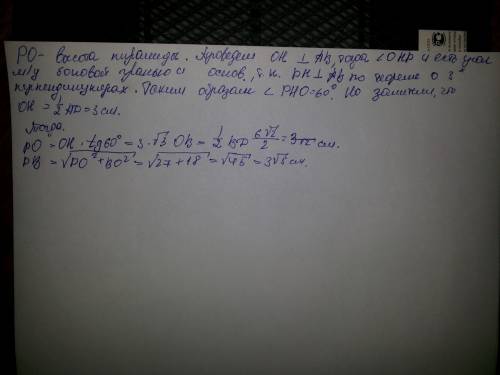 PO- высота пирамиды. Проведем OH ⊥ AB, тогда ∠OHP и есть угол
м/у боковой гранью и основ., т.к. PH ⊥ AB по теореме о 3ˣ
перпендикулярах. Таким образом ∠PHO=60°. Но заметим, что
OH = 1/2 AD = 3 см.
Тогда.
PO = OH · tg60° = 3·√3 OB = 1/2 BD 6√2/2 = 3√2 см.
PB = √PO²+BO² = √27+18 = √45 = 3√5 см.